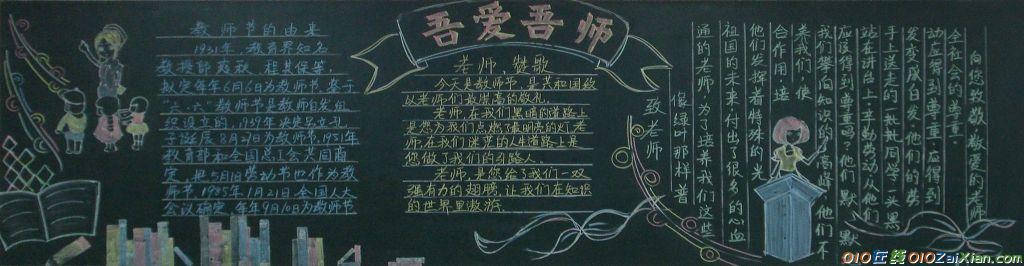 吾爱吾师
教师节的由来
1931年,教育界知名
教授邰爽秋、程其保等,
拟定每年6月6日为教师节,鉴于
"六·六"教师节是教师自发组
织设立的,1939年决定另立孔
子诞辰8月27日为教师节,1951年
教育部和全国总工会共同商
定,把5月1日劳动节也作为教
师节,1985年1月21日,全国人大
会议确定,每年9月10日为教师节
老师,赞歌
今天是教师节,是共和国致
以老师们最崇高的敬礼。
老师,在我们黑暗的道路上
是您为我们点燃了最明亮的灯,老
师,在我们迷茫的人生道路上是
您做了我们的引路人。
老师,是您给了我们一双
强有力的翅膀,让我们在知识
的世界里遨游。
致老师
像绿叶那样普
通的老师,为了培养我们这些
祖国的未来付出了很多的心血
他们发挥着特殊的光
合作用,适
养我们,使
我们攀向知识的高峰,他们不
应该得到尊重吗?他们默默
站在讲台上,辛勤劳动,从他们
手上送走的一批批同学,头黑
发变成白发,他们的劳
动应得到尊重,应得到
全社会的尊重。
向您致敬,敬爱的老师
010在线 010ZaiXian.com